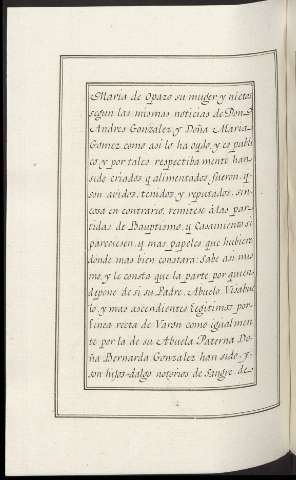 Maria de Opazo su muger y nietos
segun las mismas noticias de Don
Andres Gonzalez y Doña Maria
Gomez como asi lo ha oydo, y es publi
co, y por tales respectibamente han
sido criados, y alimentados, fueron, y
son avidos, tenidos, y reputados, sin
cosa en contrario, remitese à las par
tidas de Bauptismo, y Casamiento si
pareciesen, y mas papeles que hubiere
donde mas bien constara: Sabe asi mis
mo, y le consta que la parte por quien
depone de si, su Padre, Abuelo, Visabue
lo y mas ascendientes Legitimos por
linea recta de Varon como igualmen
te por la de su Abuela Paterna Do
ña Bernarda Gonzalez han sido, y
son hijos-dalgo notorios de Sangre, de